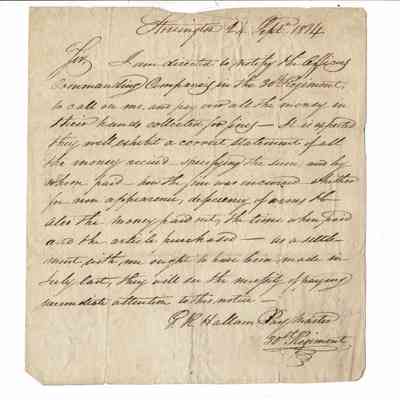 Stonington 24 Sept. 1814
Sir, I am directed to notify the Officers
Commanding Companys in the 30th Regiment,
to call on me and pay over all the money in
their hands collected for fines — It is expected
they will exhibit a correct statement of all
the money received specifying the sum and by
whom paid — how the fine was incurred whether
for non appearance, deficiency of arms &c
also the money paid out, the time when paid
and the article purchased — as a settle-
ment with me ought to have been made in
July last, they will see the necessity of paying
immediate attention to this notice —
G R Hallam Pay Master
30th Regiment